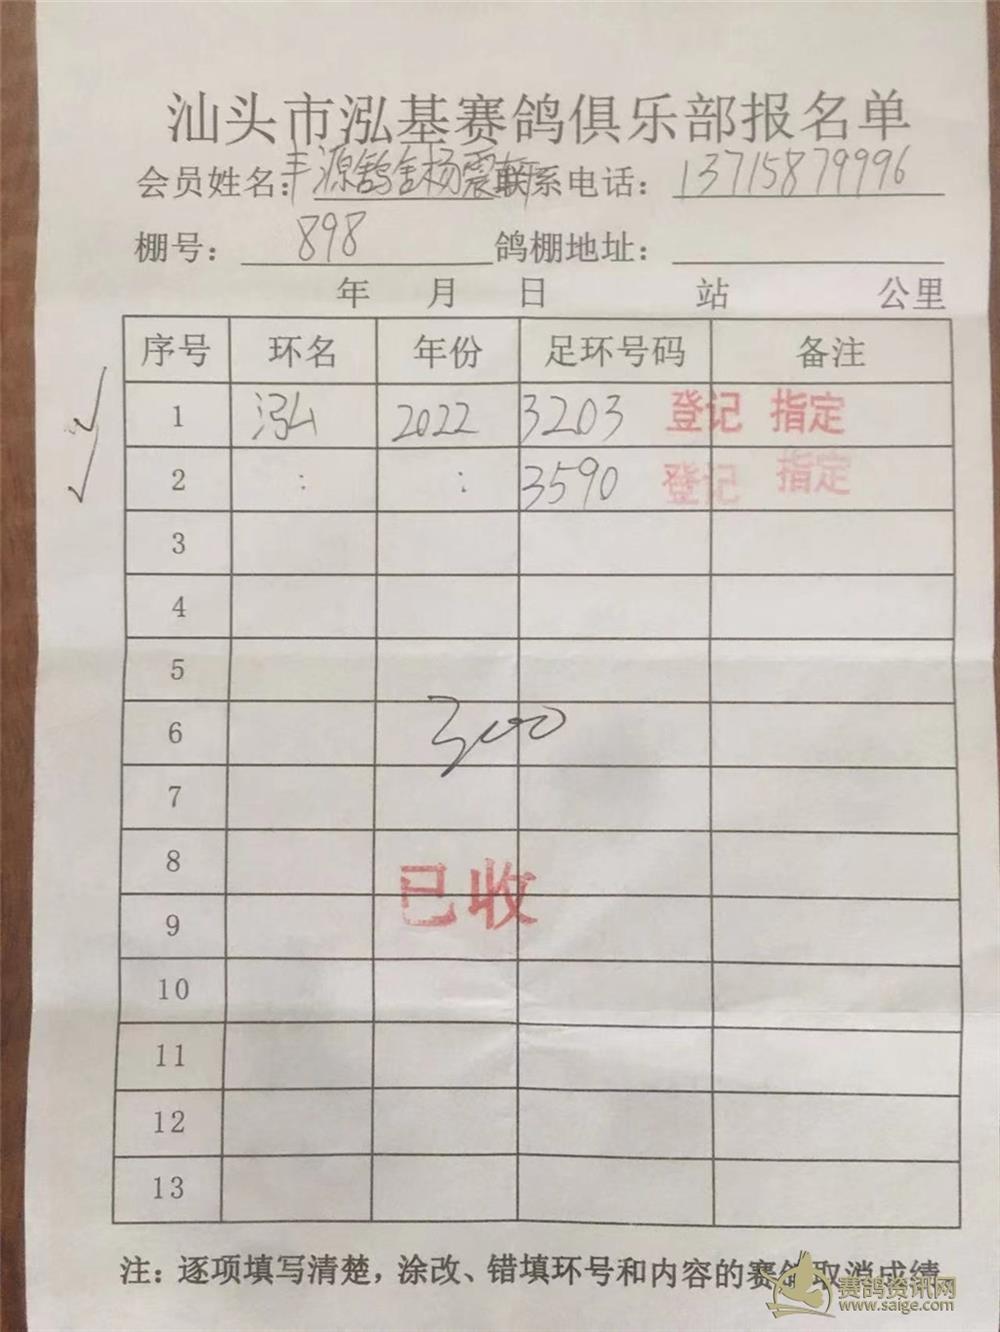 汕头市泓基赛鸽俱乐部报名单
会员姓名：丰源鸽舍杨震 联系电话：13715879996
棚号：898 鸽棚地址：
年 月 日 站 公里
序号 环名 年份 足环号码 备注
1 泓 2022 3203 登记 指定
2 : : 3590 登记 指定
3
4
5
6
300
7
8
已收
9
10
11
12
13
注：逐项填写清楚，涂改、错填环号和内容的赛鸽取消成绩
赛鸽资讯网
www.saige.com